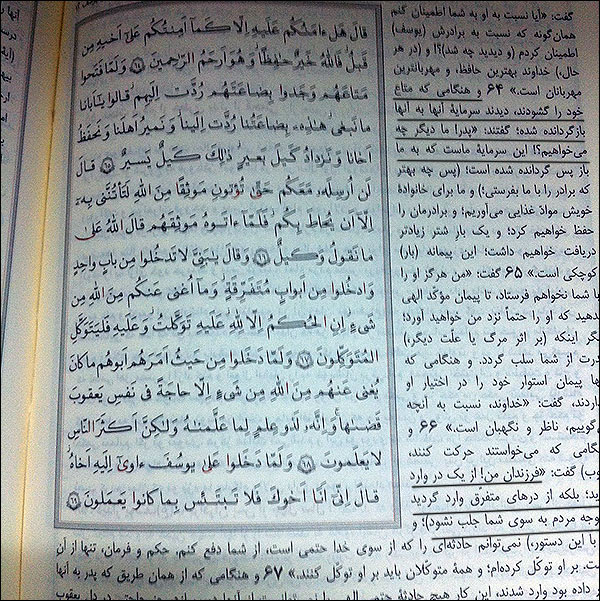 قَالَ هَلْ ءَامَنُكُمْ عَلَيْهِ إِلَّا كَمَا أَمِنتُكُمْ عَلَىٰ أَخِيهِ مِن
قَبْلُ فَاللَّهُ خَيْرٌ حَافِظًا وَهُوَ أَرْحَمُ الرَّاحِمِينَ ﴿٦٤﴾ وَلَمَّا فَتَحُوا
مَتَاعَهُمْ وَجَدُوا بِضَاعَتَهُمْ رُدَّتْ إِلَيْهِمْ قَالُوا يَا أَبَانَا
مَا نَبْغِي هَٰذِهِ بِضَاعَتُنَا رُدَّتْ إِلَيْنَا وَنَمِيرُ أَهْلَنَا وَنَحْفَظُ
أَخَانَا وَنَزْدَادُ كَيْلَ بَعِيرٍ ذَٰلِكَ كَيْلٌ يَسِيرٌ ﴿٦٥﴾ قَالَ
لَنْ أُرْسِلَهُ مَعَكُمْ حَتَّىٰ تُؤْتُونِ مَوْثِقًا مِنَ اللَّهِ لَتَأْتُنَّنِي بِهِ
إِلَّا أَن يُحَاطَ بِكُمْ فَلَمَّا ءَاتَوْهُ مَوْثِقَهُمْ قَالَ اللَّهُ عَلَىٰ
مَا نَقُولُ وَكِيلٌ ﴿٦٦﴾ وَقَالَ يَا بَنِيَّ لَا تَدْخُلُوا مِن بَابٍ وَاحِدٍ
وَادْخُلُوا مِنْ أَبْوَابٍ مُتَفَرِّقَةٍ وَمَا أُغْنِي عَنكُم مِنَ اللَّهِ مِن
شَيْءٍ إِنِ الْحُكْمُ إِلَّا لِلَّهِ عَلَيْهِ تَوَكَّلْتُ وَعَلَيْهِ فَلْيَتَوَكَّلِ
الْمُتَوَكِّلُونَ ﴿٦٧﴾ وَلَمَّا دَخَلُوا مِنْ حَيْثُ أَمَرَهُمْ أَبُوهُم مَا كَانَ
يُغْنِي عَنْهُم مِنَ اللَّهِ مِن شَيْءٍ إِلَّا حَاجَةً فِي نَفْسِ يَعْقُوبَ
قَضَاهَا وَإِنَّهُ لَذُو عِلْمٍ لِمَا عَلَّمْنَاهُ وَلَٰكِنَّ أَكْثَرَ النَّاسِ
لَا يَعْلَمُونَ ﴿٦٨﴾ وَلَمَّا دَخَلُوا عَلَىٰ يُوسُفَ ءَاوَىٰ إِلَيْهِ أَخَاهُ
قَالَ إِنِّي أَنَا أَخُوكَ فَلَا تَبْتَئِسْ بِمَا كَانُوا يَعْمَلُونَ ﴿٦٩﴾
گفت: «آیا نسبت به او به شما اطمینان کنم
همان‌گونه که نسبت به برادرش (یوسف)
اطمینان کردم (و دیدید چه شد)؟! و (در هر
حال،) خداوند بهترین حافظ، و مهربانترین
مهربانان است.» ۶۴ و هنگامی که متاع
خود را گشودند، دیدند سرمایهٔ آنها به آنها
بازگردانده شده؛ گفتند: «پدر! ما دیگر چه
می‌خواهیم؟! این سرمایهٔ ماست که به ما
باز پس گردانده شده است! (پس چه بهتر
که برادر را با ما بفرستی؛) و ما برای خانوادهٔ
خویش موادّ غذایی می‌آوریم؛ و برادرمان را
حفظ خواهیم کرد؛ و یک بار شتر زیادتر
دریافت خواهیم داشت؛ این پیمانه (بار)
کوچکی است.» ۶۵ گفت: «من هرگز او را
با شما نخواهم فرستاد، تا پیمان مؤکّد الهی
دهید که او را حتماً نزد من خواهید آورد؛
گر اینکه (بر اثر مرگ یا علّت دیگر،)
درت از شما سلب گردد. و هنگامی که
ها پیمان استوار خود را در اختیار او
اردند، گفت: «خداوند، نسبت به آنچه
گوییم، ناظر و نگهبان است.» ۶۶ و
گامی که می‌خواستند حرکت کنند،
وب) گفت: «فرزندان من! از یک در وارد
ید؛ بلکه از درهای متفرّق وارد گردید
وجه مردم به سوی شما جلب نشود)؛ و
با این دستور،) نمی‌توانم حادثه‌ای را که از سوی خدا حتمی است، از شما دفع کنم. حکم و فرمان، تنها از آن
ست. بر او توکّل کرده‌ام؛ و همهٔ متوکّلان باید بر او توکّل کنند.» ۶۷ و هنگامی که از همان طریق که پدر به آنها